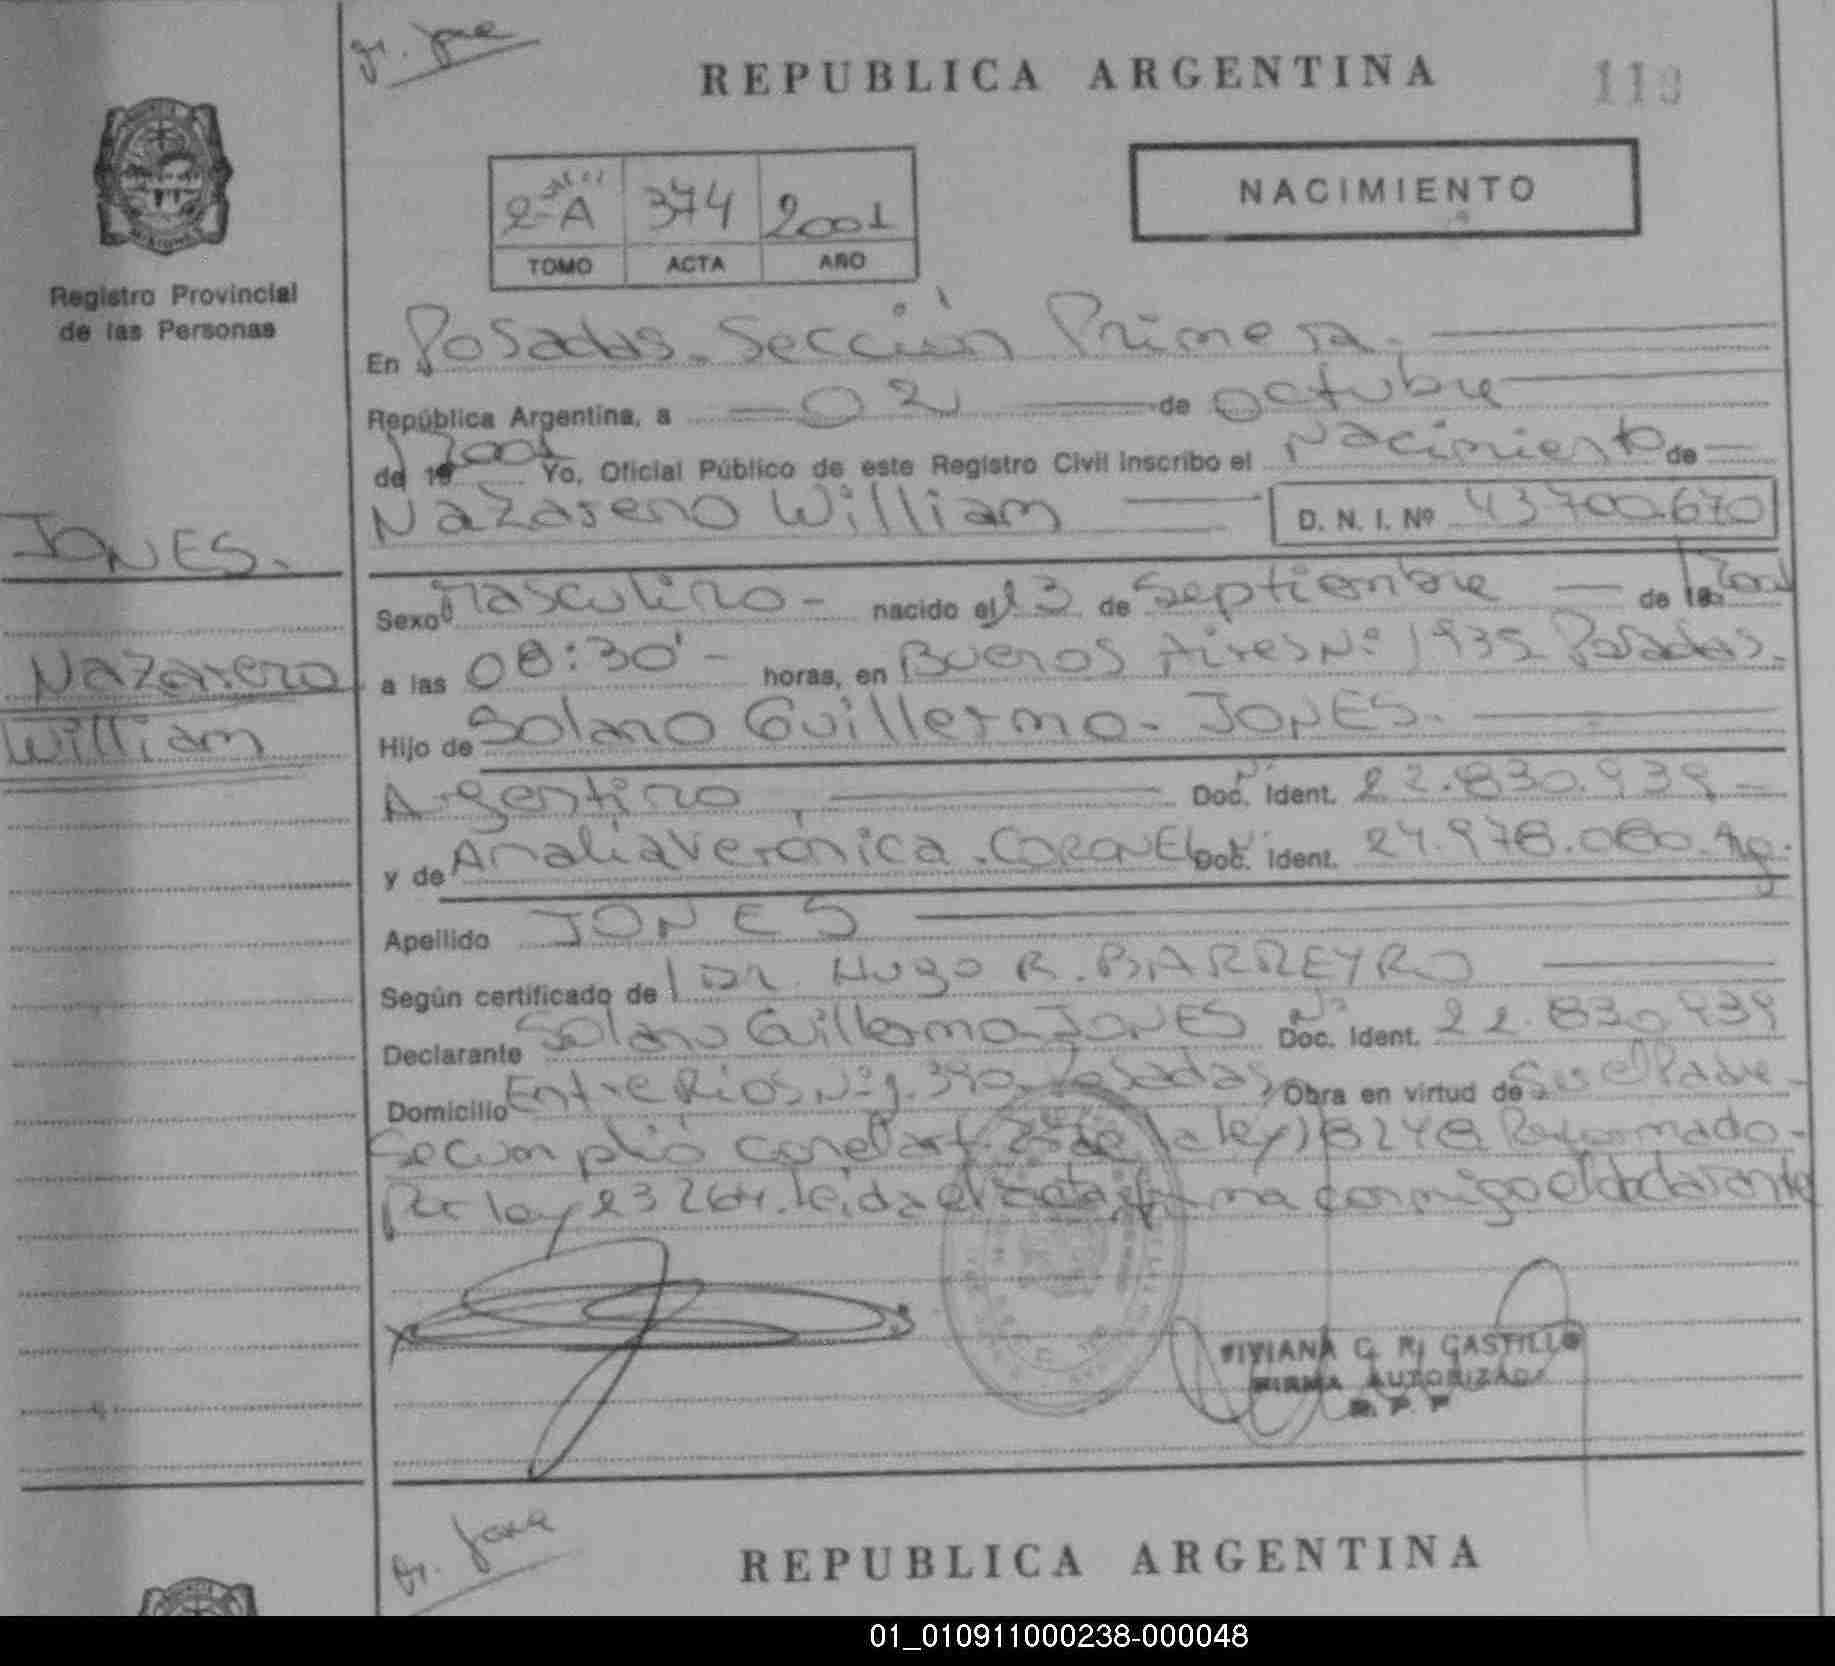 REPUBLICA ARGENTINA
2-A 374 2001
TOMO ACTA AÑO
NACIMIENTO
Registro Provincial
de las Personas
En Posadas. Sección Primera.
República Argentina, a 02 de Octubre
de 19 2001 Yo, Oficial Público de este Registro Civil inscribo el Nacimiento de
Nazareno William D. N. I. Nº 43700.670
JONES.
Nazareno
William
Sexo Masculino - nacido el 13 de Septiembre de 19 2001
a las 08:30' - horas, en Buenos Aires Nº 1935 Posadas.
Hijo de Solano Guillermo - JONES.
Argentino, Doc. Ident. 22.830.939 -
y de Analía Verónica . CORONEL Doc. Ident. 24.978.080. Arg.
Apellido JONES
Según certificado de Dr. Hugo R. BARREYRO
Declarante Solano Guillermo JONES Doc. Ident. 22.830.939
Domicilio Entre Rios Nº Posadas Obra en virtud de Ser el Padre -
Se cumplió con el art. de la ley 18248 Reformado -
Por ley 23264. leida el acta firma conmigo el declarante
VIVIANA G. R. CASTILLO
FIRMA AUTORIZADA
R. P. P
REPUBLICA ARGENTINA
01_010911000238-000048